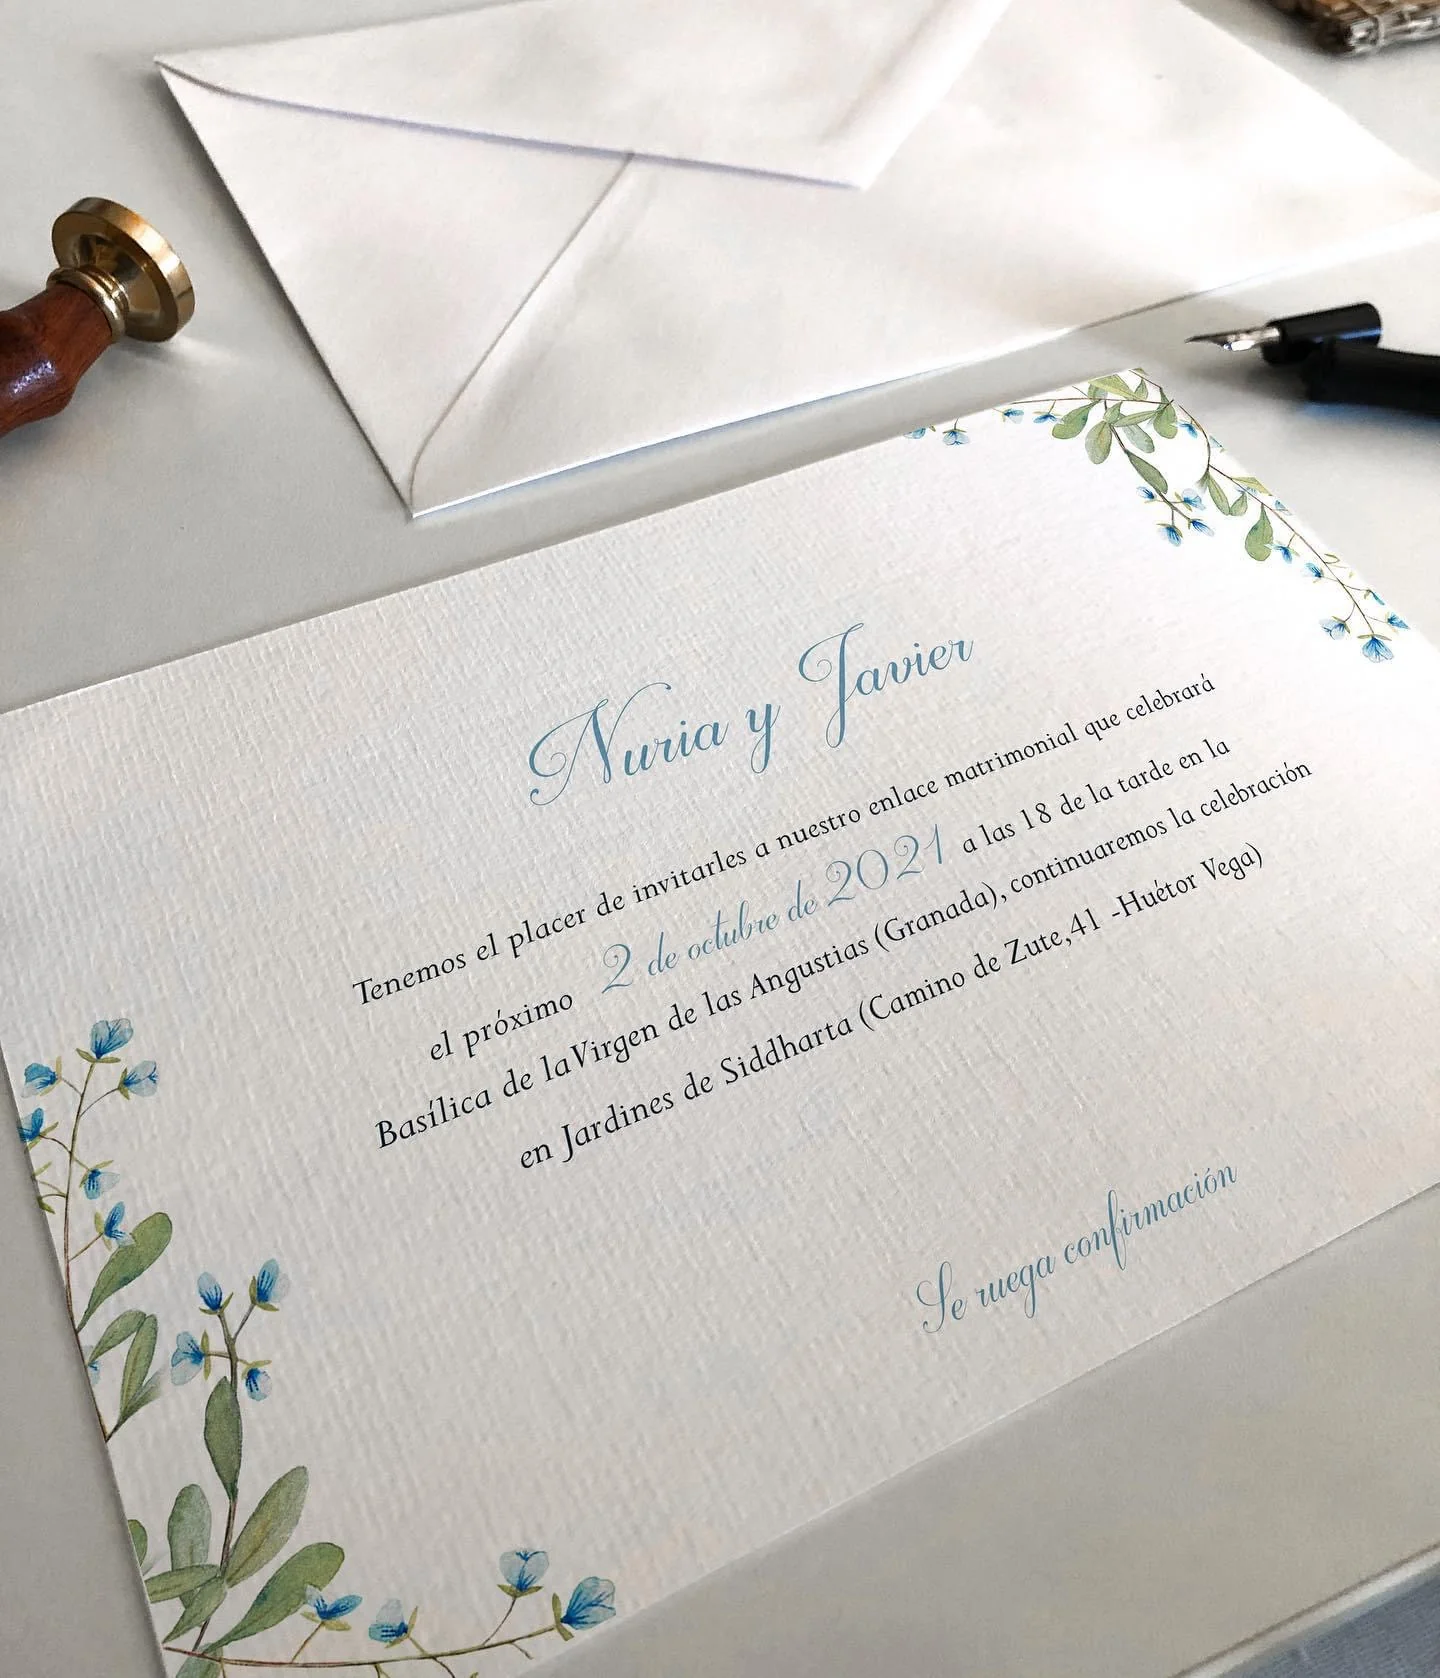 Nuria y Javier
Tenemos el placer de invitarles a nuestro enlace matrimonial que celebrará
el próximo 2 de octubre de 2021 a las 18 de la tarde en la
Basílica de laVirgen de las Angustias (Granada), continuaremos la celebración
en Jardines de Siddharta (Camino de Zute,41 -Huétor Vega)
Se ruega confirmación